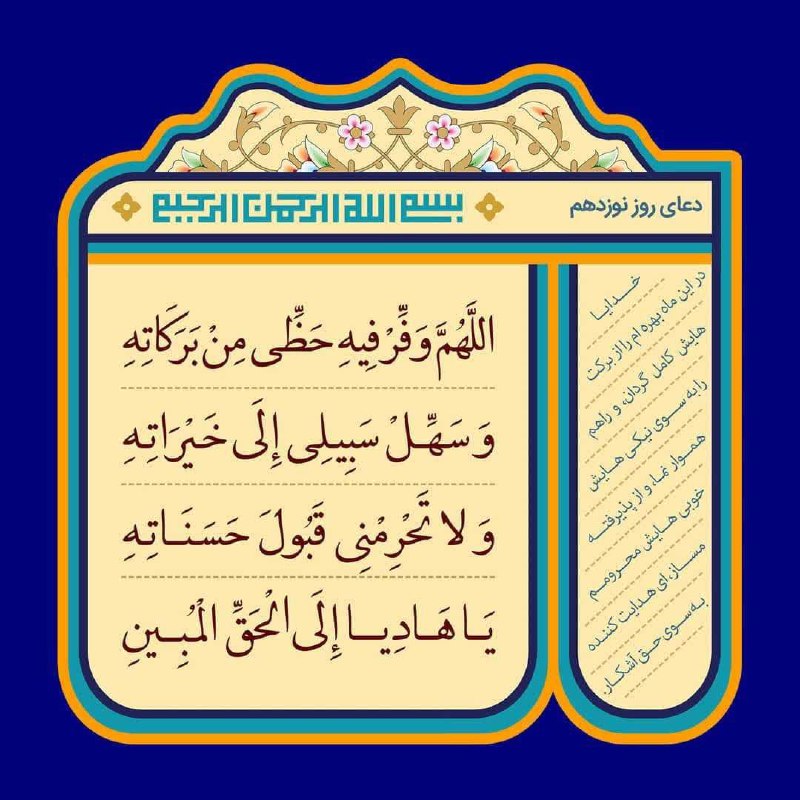 دعای روز نوزدهم
بسم الله الرحمن الرحیم
اللَّهُمَّ وَفِّرْ فِيهِ حَظِّی مِنْ بَرَكَاتِهِ
وَ سَهِّلْ سَبِيلِی إِلَی خَيْرَاتِهِ
وَ لا تَحْرِمْنِی قَبُولَ حَسَنَاتِهِ
يَا هَادِيا إِلَی الْحَقِّ الْمُبِينِ
خدایا
در این ماه بهره ام را از برکت
هایش کامل گردان، و راهم
را به سوی نیکی هایش
هموار نما، و از پذیرفته
خوبی هایش محرومم
مساز،ای هدایت کننده
به سوی حق آشکار.